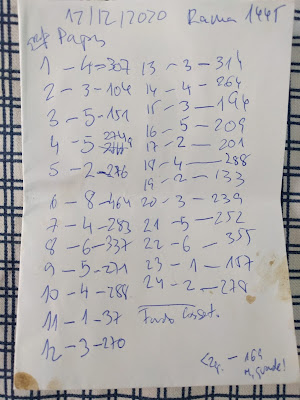 12/12/2020 1445
1 - 4 = 307
2 - 3 - 104
3 - 5 - 151
4 - 5
5 - 2 - 276
6 - 8 - 464
7 - 4 - 283
8 - 6 - 337
9 - 5 - 271
10 - 4 - 288
11 - 1 - 37
12 - 3 - 270
13 - 3 - 314
14 - 4 - 264
15 - 3 - 194
16 - 5 - 209
17 - 2 - 201
18 - 4 - 288
19 - 2 - 133
20 - 3 - 239
21 - 5 - 252
22 - 6 - 355
23 - 1 - 157
24 - 2 - 278
Fundo
- 169